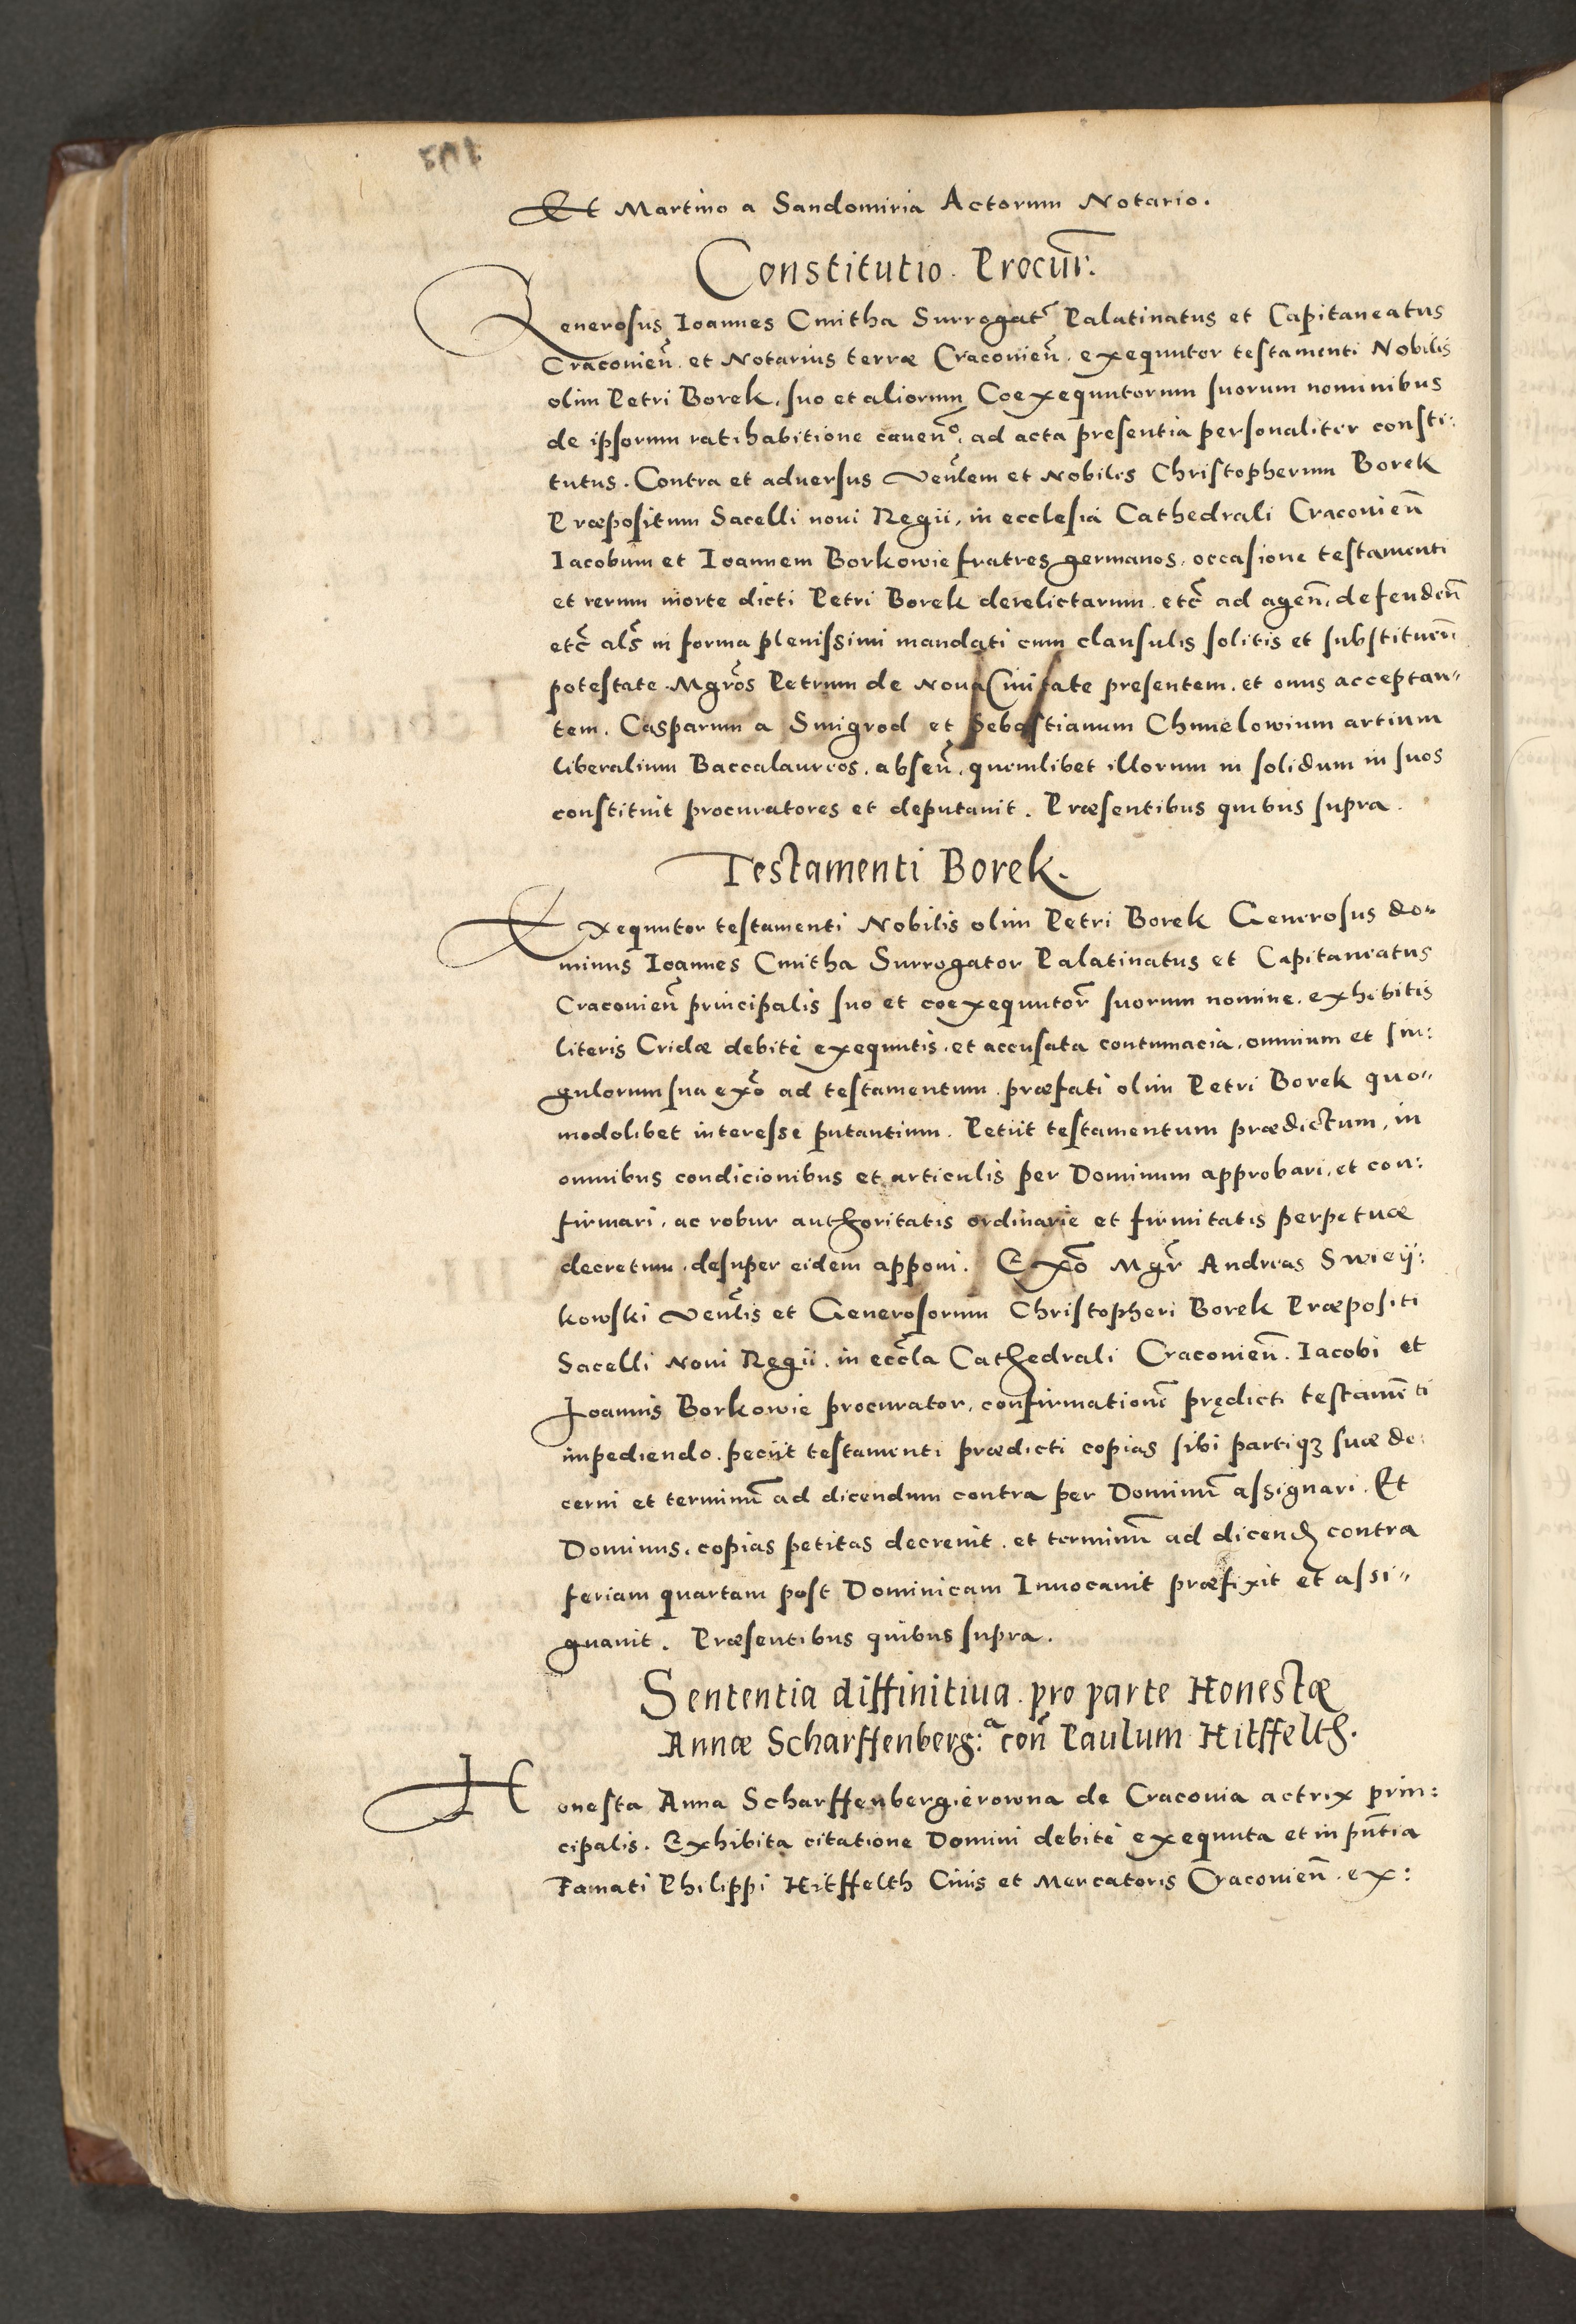 Et Martino a Sandomiria Actorum Notario.
Constitutio. Procur̃:
Generosus Ioannes Cmitha Surrogatʳ Palatinatus et Capitaneatus
Craconień. et Notarius terræ Craconień. exequutor testamenti Nobilis
olim Petri Borek, suo et aliorum Coexequutorum suorum nominibus
de ipsorum ratihabitione cauenº, ad acta presentia personaliter consti:
tutus. Contra et aduersus Veñlem et Nobiles Christopherum Borek
Præpositum Sacelli noui Regii, in ecclesia Cathedrali Craconień
Iacobum et Ioannem Borkowie fratres germanos, occasione testamenti
et rerum morte dicti Petri Borek derelictarum. etc̃ ad ageñ, defendeñ
etc̃ als̃ in forma plenissimi mandati cum clausulis solitis et substitueñ
potestate. Mgr̃os Petrum de Noua Ciuitate presentem, et onus acceptan„
tem. Casparum a Smigrod et Sebastianum Chmelowium artium
liberalium Baccalaureos, abseñ, quemlibet illorum in solidum in suos
constituit procuratores et deputauit. Præsentibus quibus supra.
Testamenti Borek.
Exequutor testamenti Nobilis olim Petri Borek Generosus do„
minus Ioannes Cmitha Surrogator Palatinatus et Capitaneatus
Craconień principalis suo et coexequutor̃ suorum nomine. exhibitis
literis Cridæ debite exequutis. et accusata contumacia, omnium et sin:
gulorum sua ex̃o ad testamentum. præfati olim Petri Borek quo„
modolibet interesse putantium. Petiit testamentum prædictum, in
omnibus condicionibus et articulis per Dominum approbari, et con:
firmari, ac robur authoritatis ordinarie et firmitatis perpetuæ
decretum, desuper eidem apponi. Ex̃o Mgr̃ Andreas Swieij:
kowski Veñlis et Generosorum Christopheri Borek Præpositi
Sacelli Noui Regii. in eccl̃a Cathedrali Craconień. Iacobi et
Ioannis Borkowie procurator, confirmationẽ prędicti testamẽti
impediendo. peciit testamenti prædicti copias sibi partiqꝫ suæ de:
cerni et terminũ ad dicendum contra per Dominũ assignari. Et
Dominus, copias petitas decreuit. et terminũ ad dicenđ contra
feriam quartam post Dominicam Inuocauit præfixit et assi„
gnauit. Præsentibus quibus supra.
Sententia diffinitiua. pro parte Honestæ
Annæ Scharffenberg:ª coñ Paulum Hitffelth.
Honesta Anna Scharffenbergierowna de Craconia actrix prin:
cipalis. Exhibita citatione Domini debite exequuta et in pñtia
Famati Philippi Hitffelth Ciuis et Mercatoris Craconień. ex: